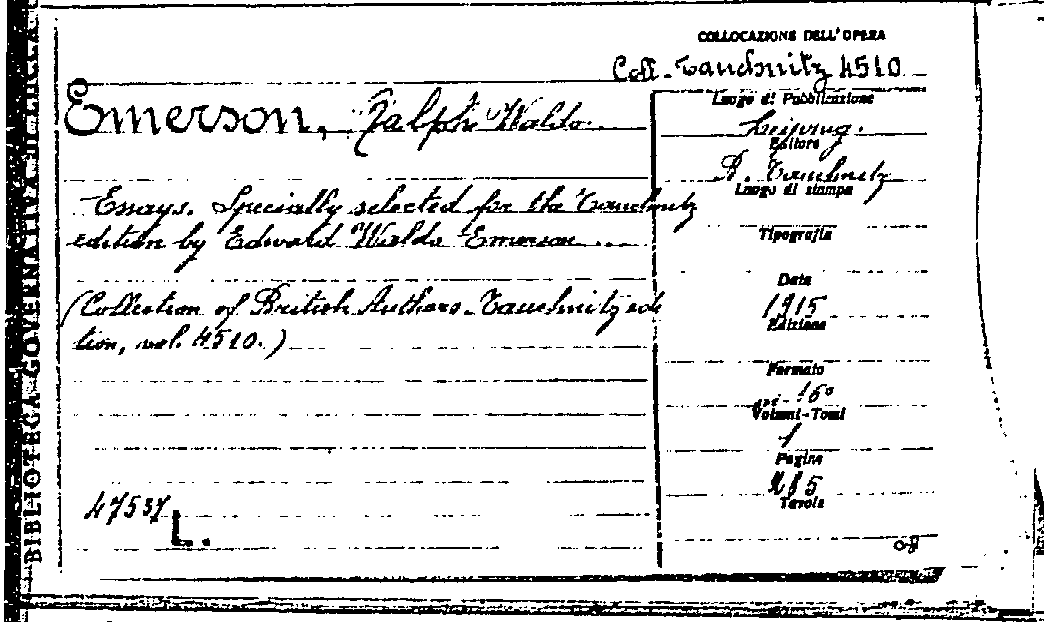 BIBLIOTECA GOVERNATIVA DI LUCCA
COLLOCAZIONE DELL'OPERA
Coll. Tauchnitz 4510
Emerson, Ralph Waldo
Essays. Specially selected for the Tauchnitz
edition by Edward Waldo Emerson ...
(Collection of British Authors. Tauchnitz edi
tion, vol. 4510.)
47537
L.
Luogo di Pubblicazione
Leipzig.
Editore
B. Tauchnitz
Luogo di stampa
Tipografia
Data
1915
Edizione
Formato
in-16°
Volumi-Tomi
1
Pagine
285
Tavole